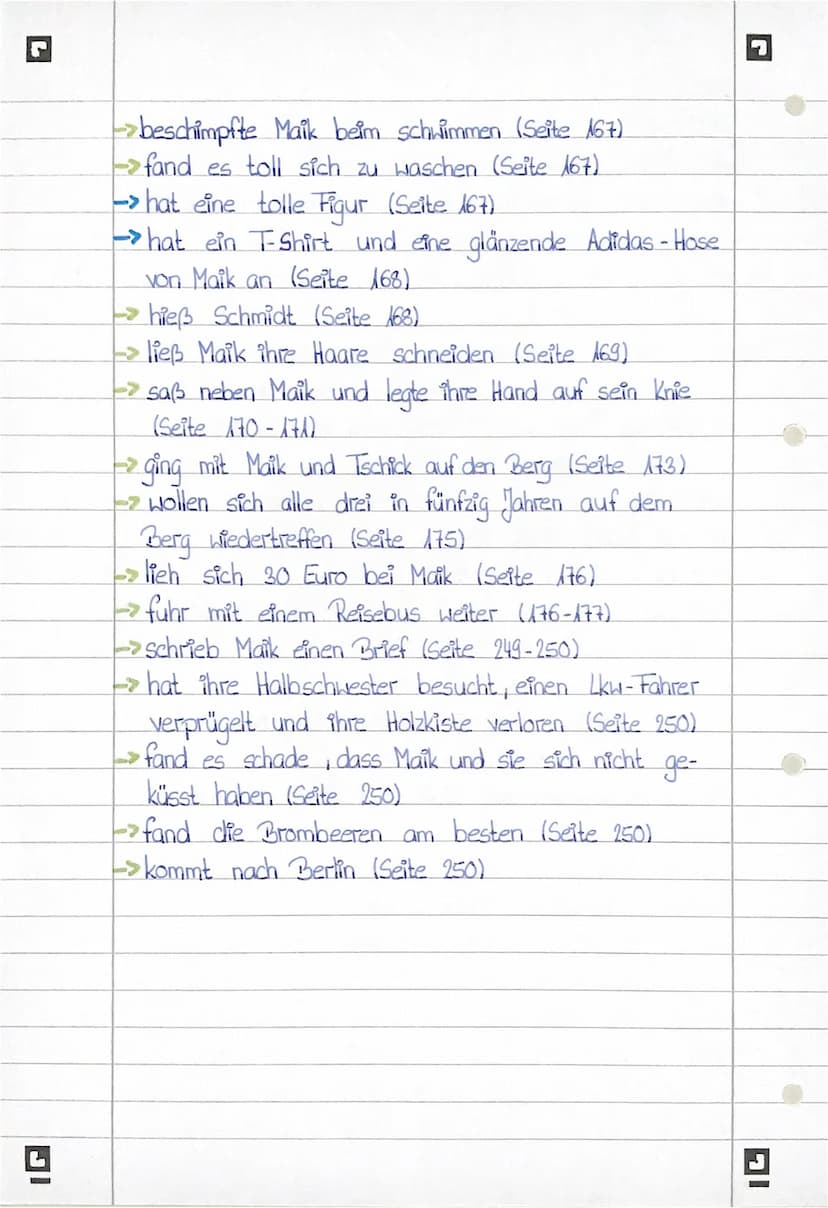 → beschimpfte Maik beim schwimmen (Seite 167)
→ fand es toll sich zu waschen (Seite 167)
→ hat eine tolle Figur (Seite 167)
→ hat ein T-Shirt und eine glänzende Adidas-Hose
von Maik an (Seite 168)
→ hieß Schmidt (Seite 168)
→ ließ Maik ihre Haare schneiden (Seite 169)
→ saß neben Maik und legte ihre Hand auf sein Knie
(Seite 170-171)
→ ging mit Maik und Tschick auf den Berg (Seite 173)
→ wollen sich alle drei in fünfzig Jahren auf dem
Berg wiedertreffen (Seite 175)
→ lieh sich 30 Euro bei Maik (Seite 176)
→ fuhr mit einem Reisebus weiter (176-177)
→ schrieb Maik einen Brief (Seite 249-250)
→ hat ihre Halbschwester besucht, einen Lkw-Fahrer
verprügelt und ihre Holzkiste verloren (Seite 250)
→ fand es schade, dass Maik und sie sich nicht ge-
küsst haben (Seite 250)
→ fand die Brombeeren am besten (Seite 250)
→ kommt nach Berlin (Seite 250)